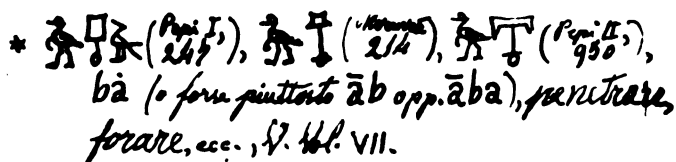 * (Pepi I, 247), (Merenra 214), (Pepi II, 950),
bȧ (o forse piuttosto āb opp. āba), penetrare,
forare, ecc., V. Vol. VII.